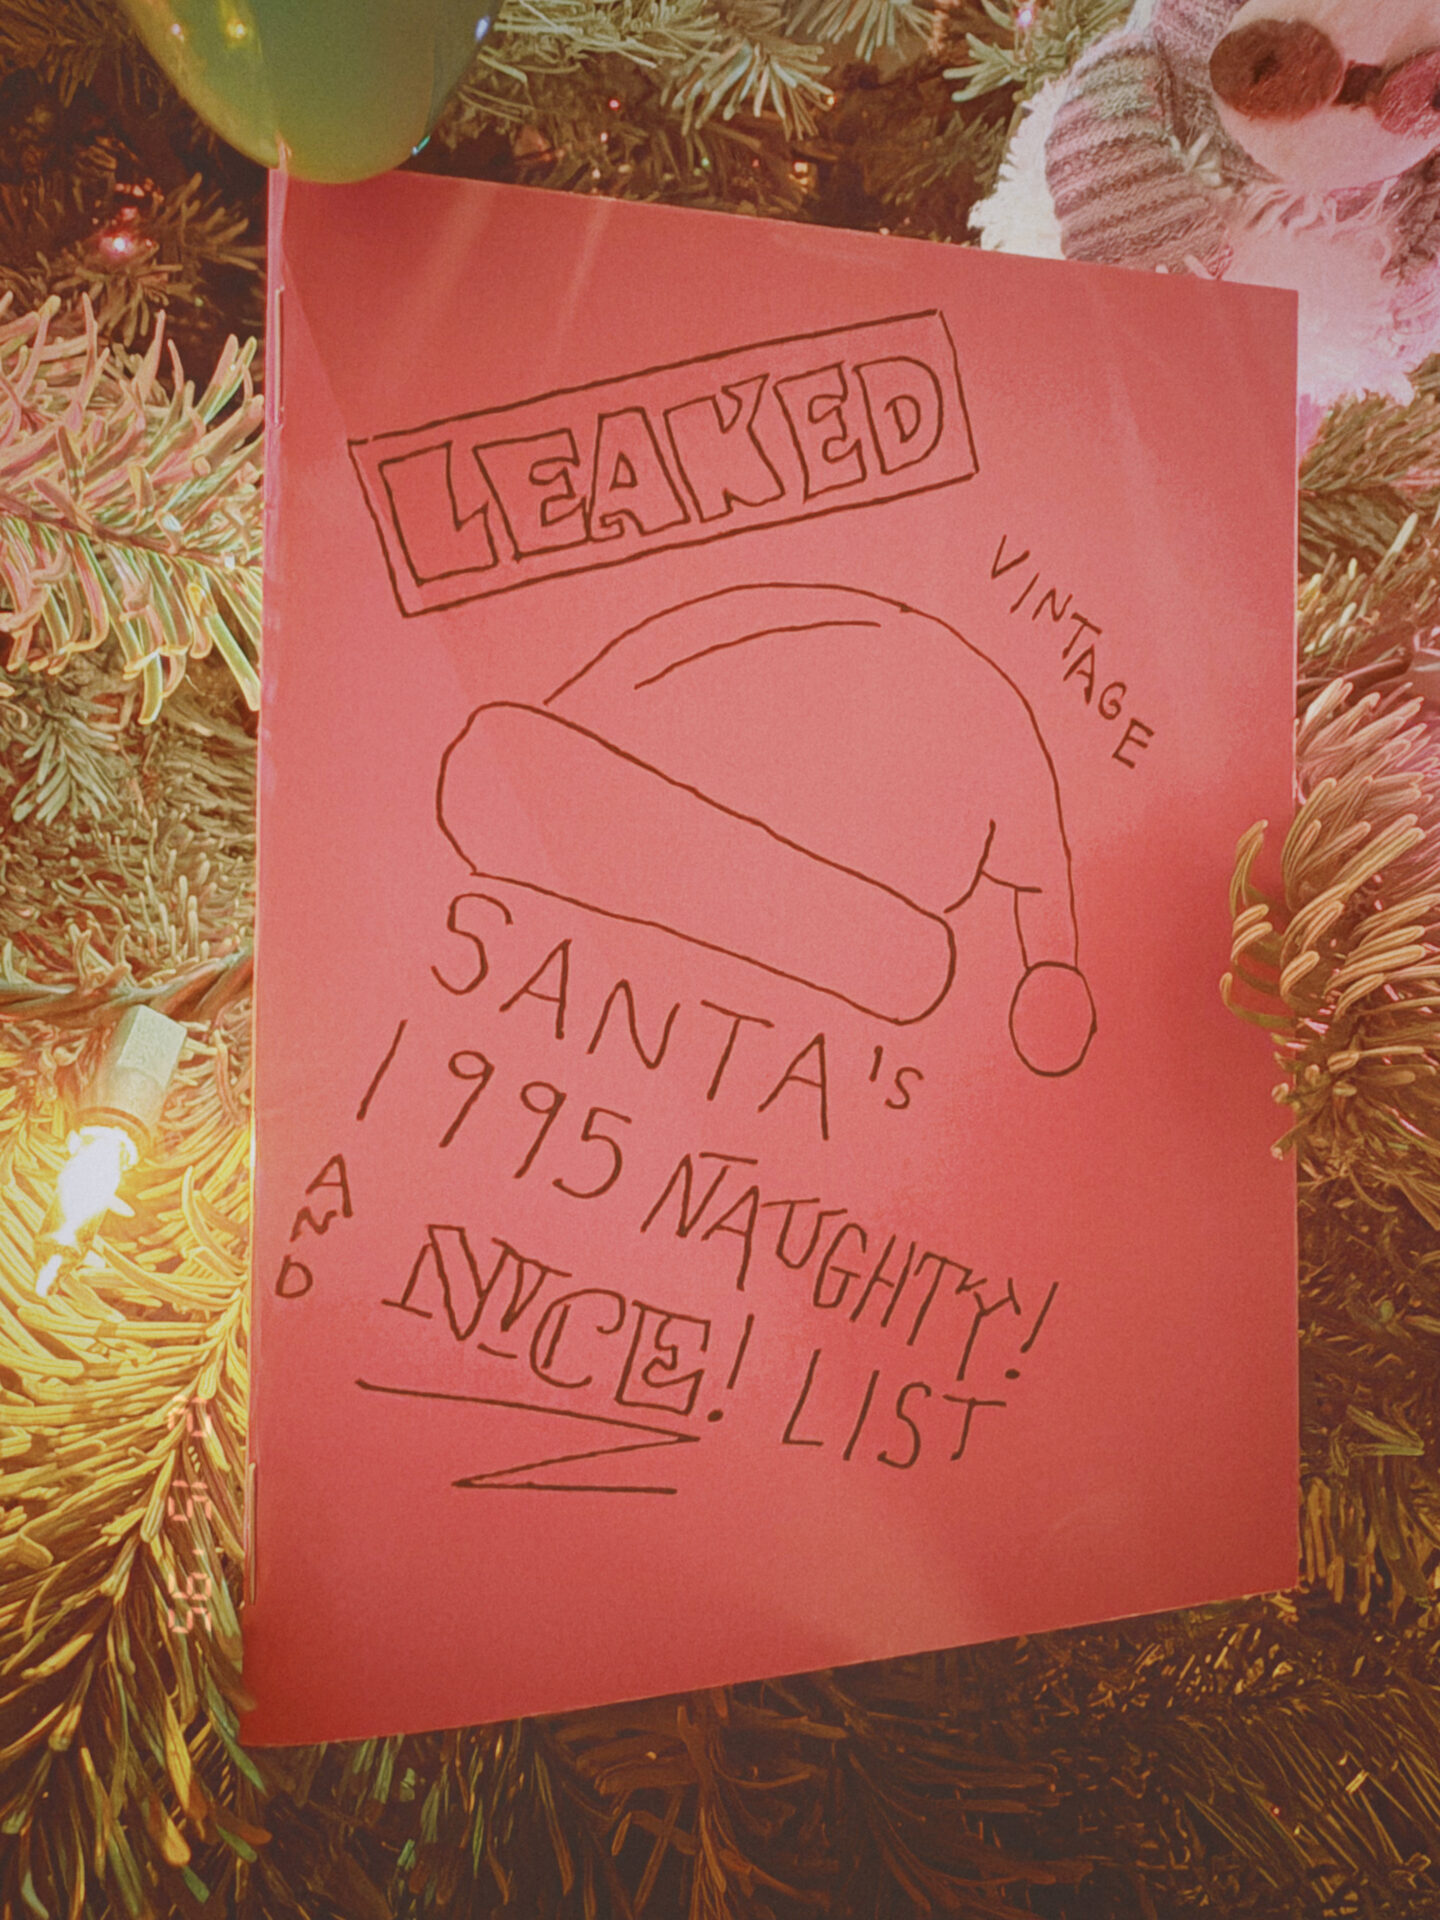 LEAKED
VINTAGE
SANTA'S
1995 NAUGHTY!
AND
NICE! LIST
15 '95